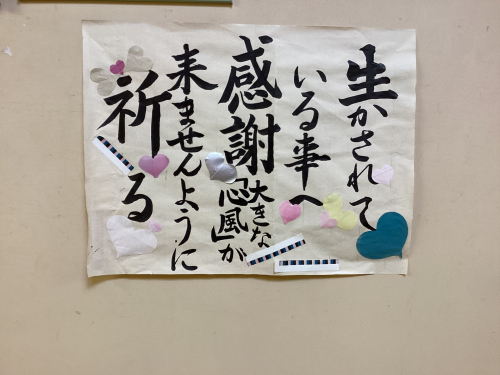 生かされて
いる事へ
感謝
大きな
「心風」が
来ませんように
祈る